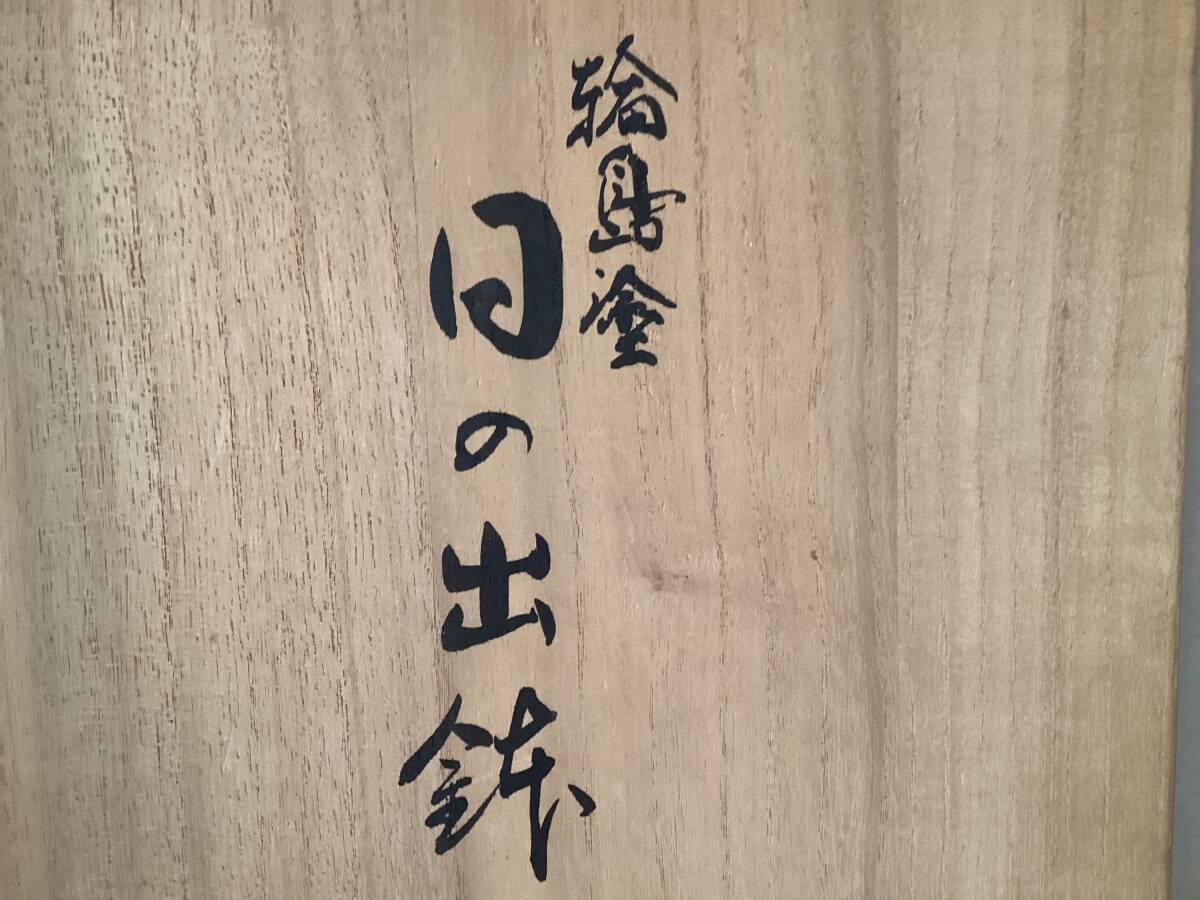 輪島塗
日の出鉢